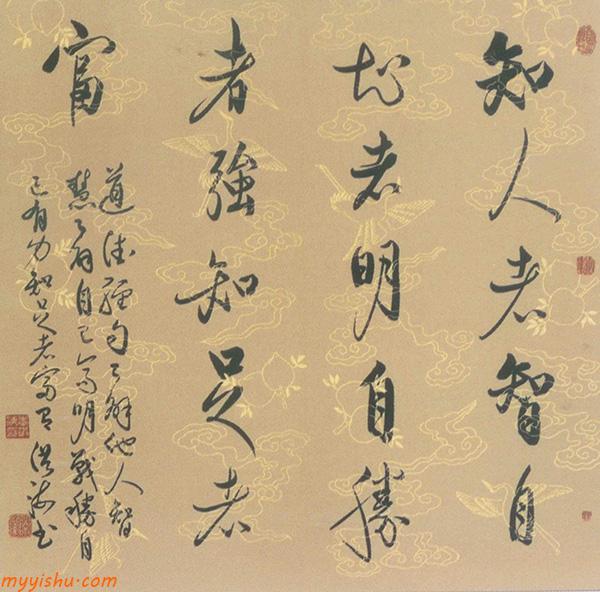 知人者智自
知者明自勝
者強知足者
富
道德經句了解他人智
慧了解自己高明戰勝自
己有力知足者富有洪海书
myyishu.com